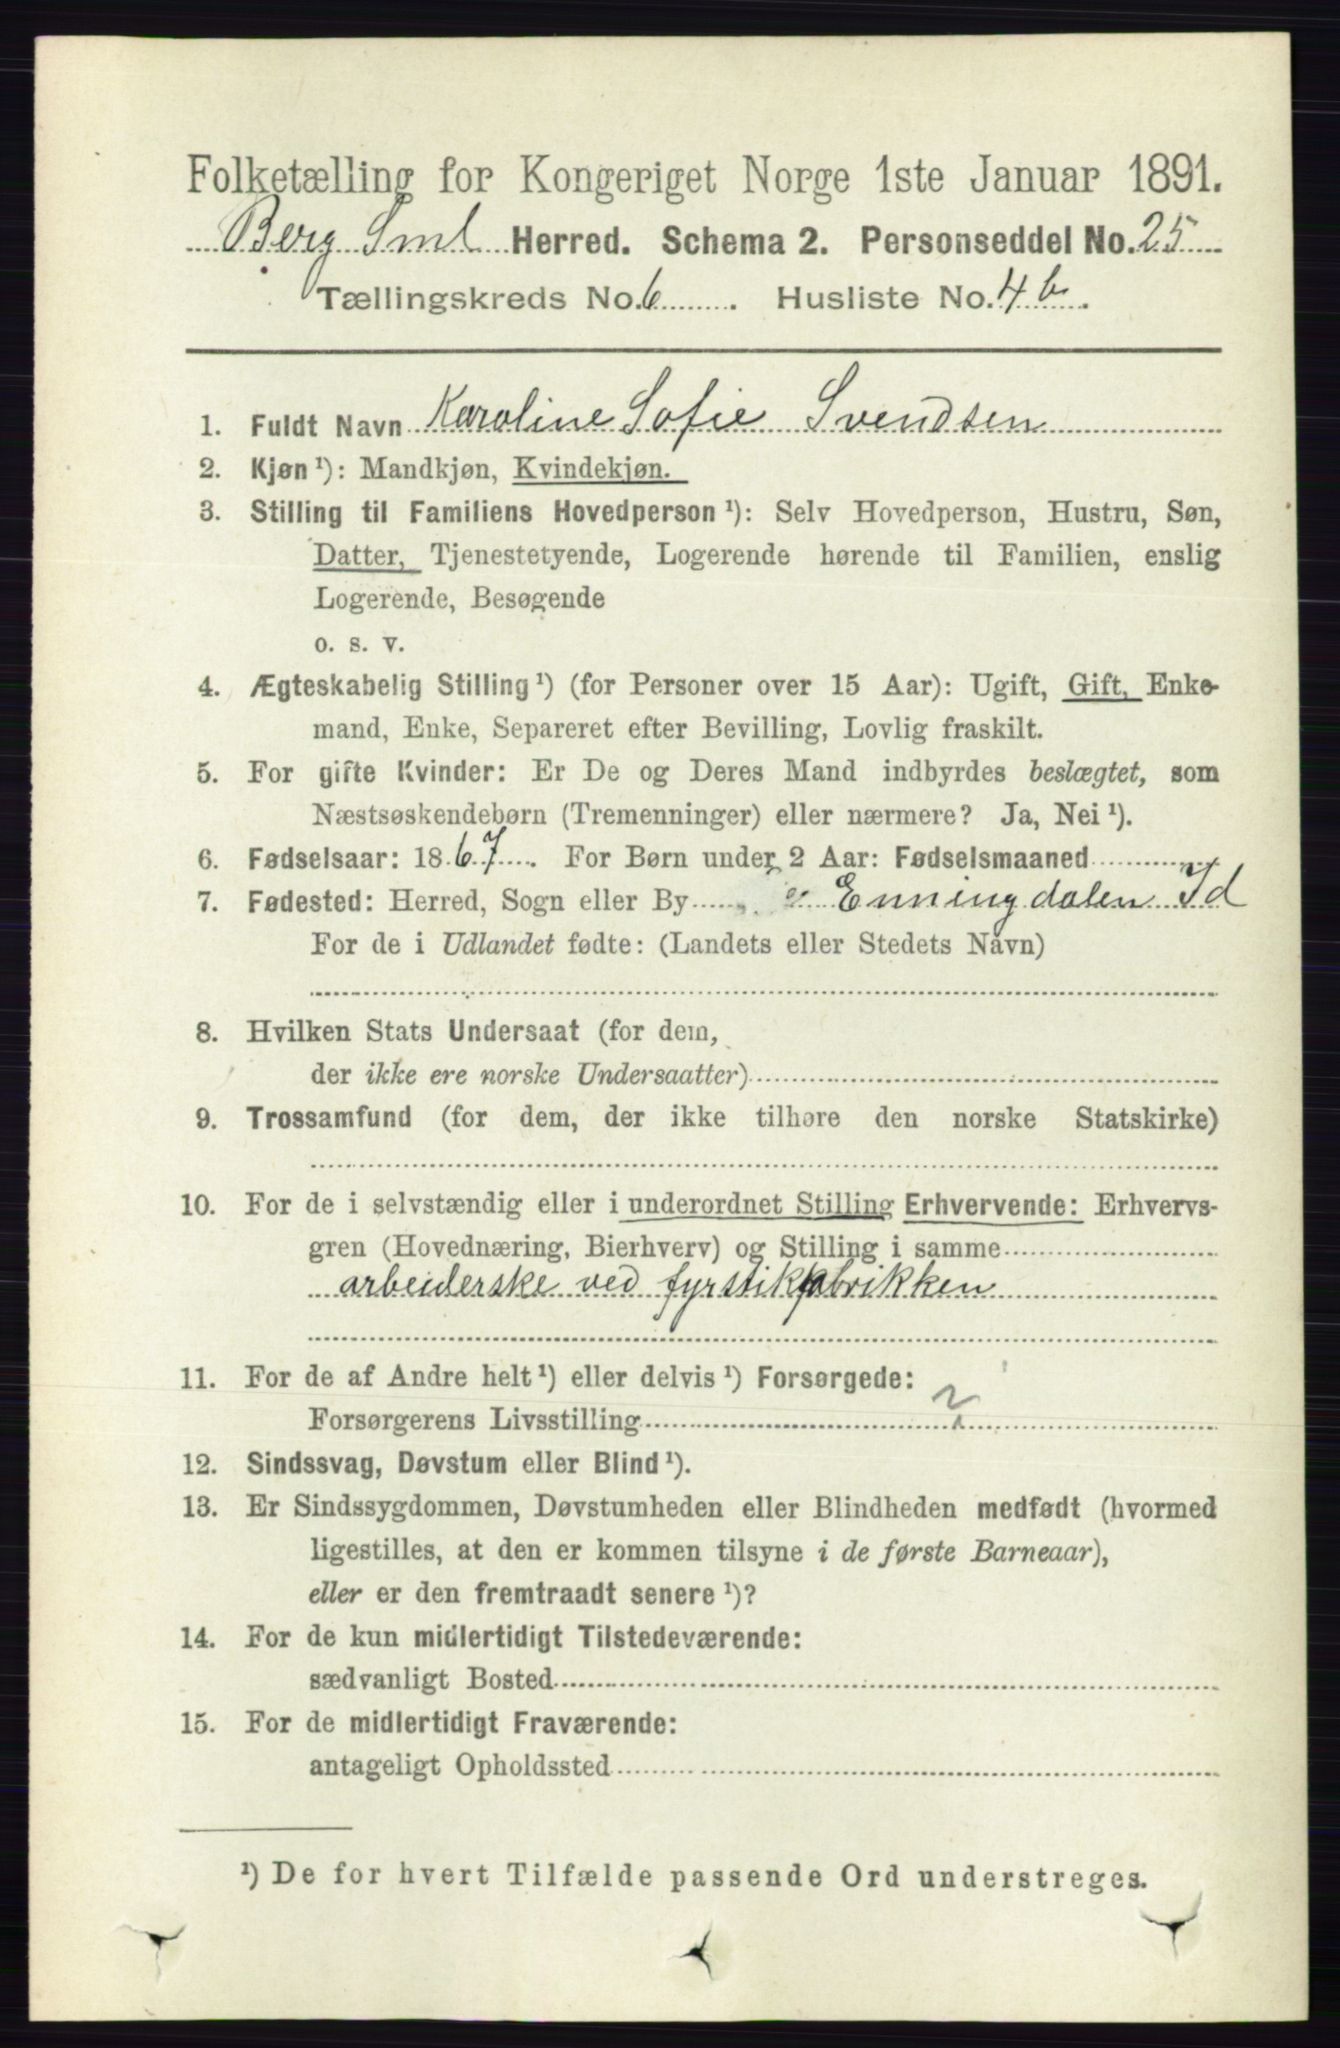 Folketælling for Kongeriget Norge 1ste Januar 1891.
Berg Sml Herred. Schema 2. Personseddel No. 25
Tællingskreds No. 6. Husliste No. 4 b.
1. Fuldt Navn Karoline Sofie Svendsen
2. Kjøn ¹): Mandkjøn, Kvindekjøn.
3. Stilling til Familiens Hovedperson ¹): Selv Hovedperson, Hustru, Søn,
Datter, Tjenestetyende, Logerende hørende til Familien, enslig
Logerende, Besøgende
o. s. v.
4. Ægteskabelig Stilling ¹) (for Personer over 15 Aar): Ugift, Gift, Enke-
mand, Enke, Separeret efter Bevilling, Lovlig fraskilt.
5. For gifte Kvinder: Er De og Deres Mand indbyrdes beslægtet, som
Næstsøskendebørn (Tremenninger) eller nærmere? Ja, Nei ¹).
6. Fødselsaar: 1867. For Børn under 2 Aar: Fødselsmaaned
7. Fødested: Herred, Sogn eller By Enningdalen Id
For de i Udlandet fødte: (Landets eller Stedets Navn)
8. Hvilken Stats Undersaat (for dem,
der ikke ere norske Undersaatter)
9. Trossamfund (for dem, der ikke tilhøre den norske Statskirke)
10. For de i selvstændig eller i underordnet Stilling Erhvervende: Erhvervs-
gren (Hovednæring, Bierhverv) og Stilling i samme
arbeiderske ved fyrstikfabrikken
11. For de af Andre helt ¹) eller delvis ¹) Forsørgede:
Forsørgerens Livsstilling
12. Sindssvag, Døvstum eller Blind ¹).
13. Er Sindssygdommen, Døvstumheden eller Blindheden medfødt (hvormed
ligestilles, at den er kommen tilsyne i de første Barneaar),
eller er den fremtraadt senere ¹)?
14. For de kun midlertidigt Tilstedeværende:
sædvanligt Bosted
15. For de midlertidigt Fraværende:
antageligt Opholdssted
¹) De for hvert Tilfælde passende Ord understreges.